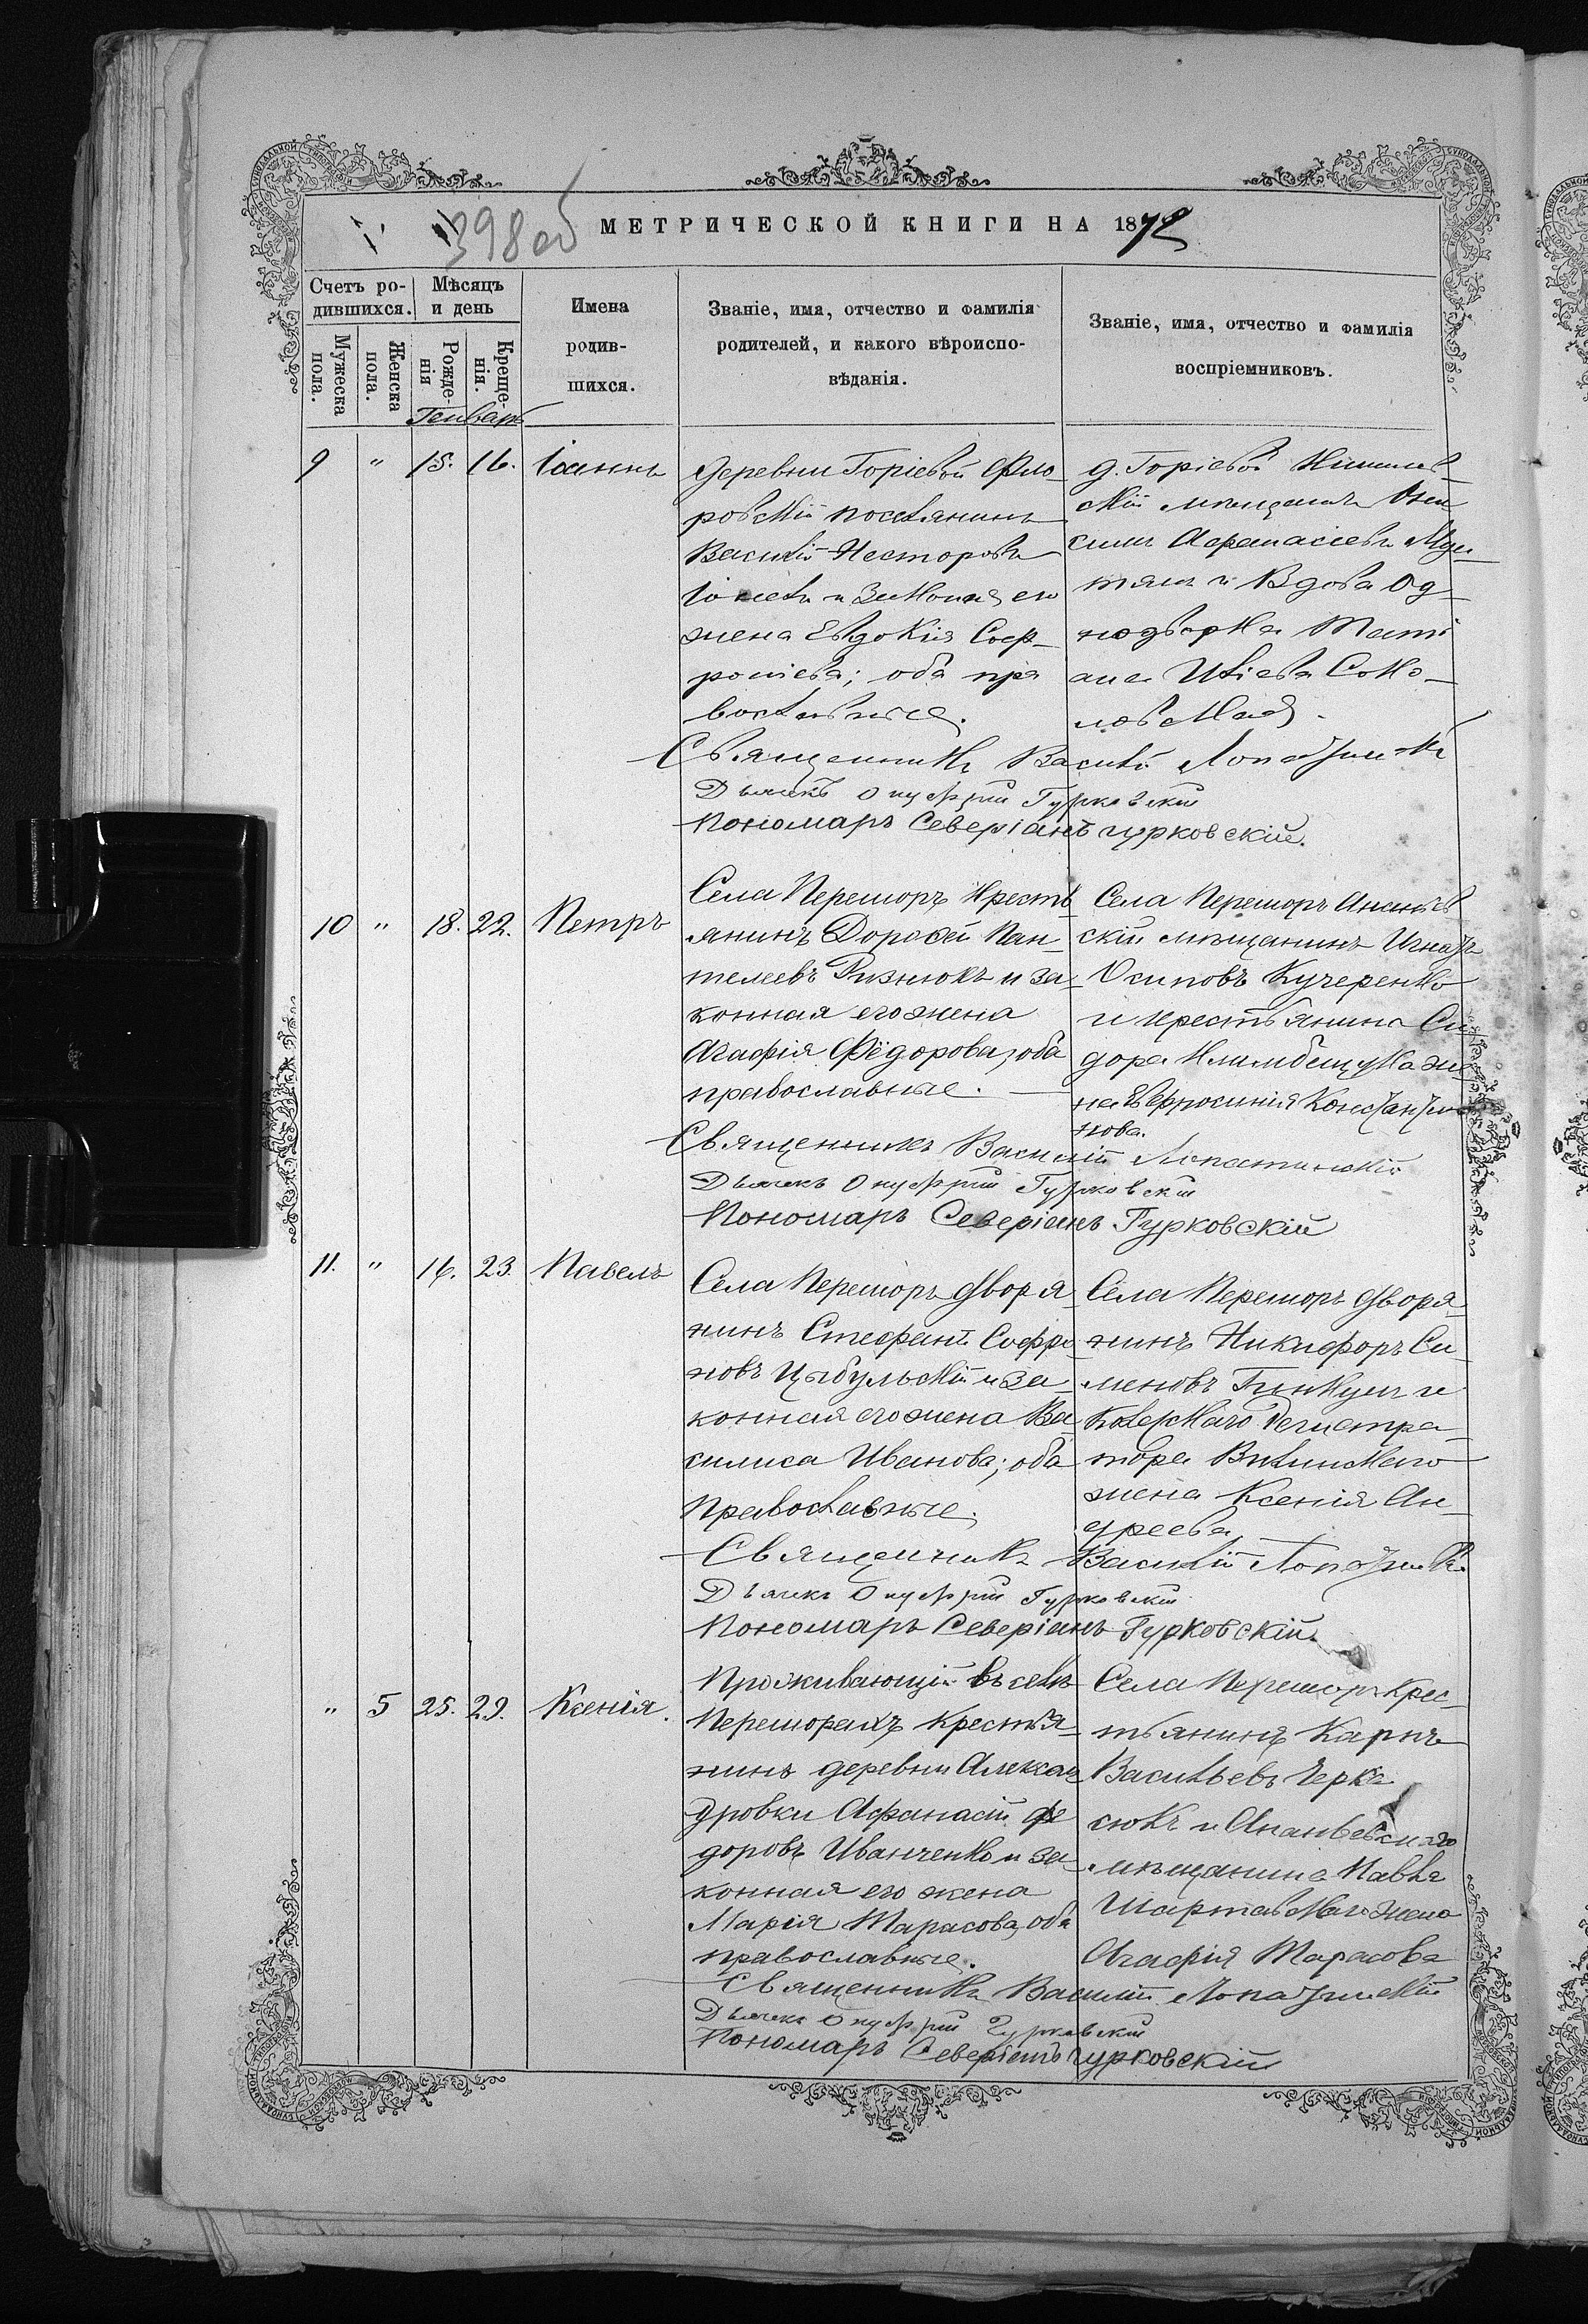 398 об
МЕТРИЧЕСКОЙ КНИГИ НА 1872
Счетъ родившихся.
Мужеска пола.
Женска пола.
Мѣсяцъ и день
Рожденія
Крещенія.
Имена родившихся.
Званіе, имя, отчество и фамилія
родителей, и какого вѣроиспо-
вѣданія.
Званіе, имя, отчество и фамилія
воспріемниковъ.
Генварь
9 " 15. 16. Іоаннъ
деревни Горіевой Фло-
ровскій поселянинъ
Василій Несторовъ
и законная его
жена Евдокія Соф-
роніева; оба пра
вославные.
д. Горіевой
скій мещанинъ Они
симъ Афанасіевъ
и Вдова Од
нодворка Тати
ана Иліева Соко-
ловская.
Священникъ Василій
Дьячекъ Онуфрій Гурковскій
Пономарь Северіанъ Гурковскій.
10 " 18. 22. Петръ
Села Перешоръ Кресть
янинъ Дорофей Пан-
телеевъ Ризнюкъ и за-
конная его жена
Агафія Фёдорова, оба
православные.
Села Перешоръ Ананьев
скій мещанинъ Игнатъ
Осиповъ Кучеренко
и крестьянина Си-
дора же
на Ефросинія Константи
нова.
Священникъ Василій Лопатинскій
Дьячекъ Онуфрій Гурковскій
Пономарь Северіанъ Гурковскій
11. " 16. 23. Павелъ
Села Перешоръ дворя-
нинъ Стефанъ Софро
новъ Цыбульскій и за-
конная его жена Ва
силиса Иванова; оба
Православные.
Села Перешоръ дворя-
нинъ Никифоръ Си-
меновъ и
Колежскаго Регистра-
тора
жена Ксенія Ан-
дреева
Священникъ Василій
Дьячекъ Онуфрій Гурковскій
Пономарь Северіанъ Гурковскій.
" 5 25. 29. Ксенія.
Проживающій въ селѣ
Перешорахъ крестья-
нинъ деревни Алексан
дровки Афанасій Фе
доровъ Иванченко и за-
конная его жена
Марія Тарасова, оба
православные.
Села Перешоръ Крес-
тьянинъ Карпъ
Васильевъ Черка
сюкъ и Ананьевскаго
мѣщанина Павла
жена
Агафія Тарасова
Священникъ Василій Лопатинскій
Дьячекъ Онуфрій Гурковскій
Пономарь Северіанъ Гурковскій